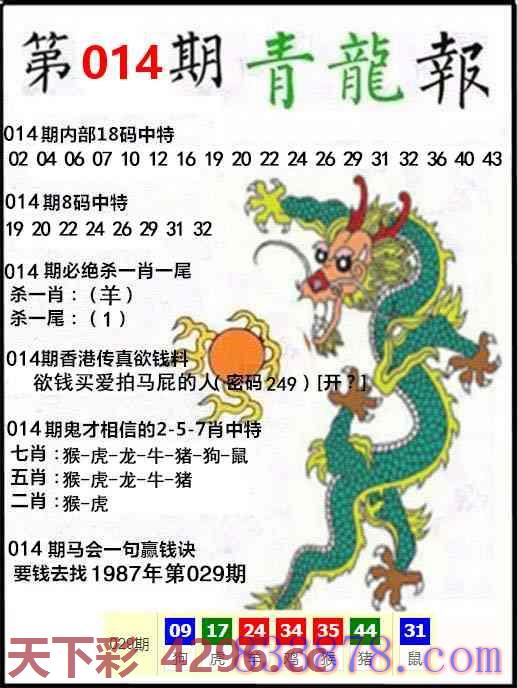 第014期青龍報
014期内部18码中特
02 04 06 07 10 12 16 19 20 22 24 26 29 31 32 36 40 43
014期8码中特
19 20 22 24 26 29 31 32
014期必绝杀一肖一尾
杀一肖：（羊）
杀一尾：（1）
014期香港传真欲钱料
欲钱买爱拍马屁的人（密码249）[开？]
014期鬼才相信的2-5-7肖中特
七肖：猴-虎-龙-牛-猪-狗-鼠
五肖：猴-虎-龙-牛-猪
二肖：猴-虎
014期马会一句赢钱诀
要钱去找1987年第029期
029期 09 17 24 34 35 44 31
狗 虎 羊 鸡 猴 猪 鼠
天下彩 4296.cc